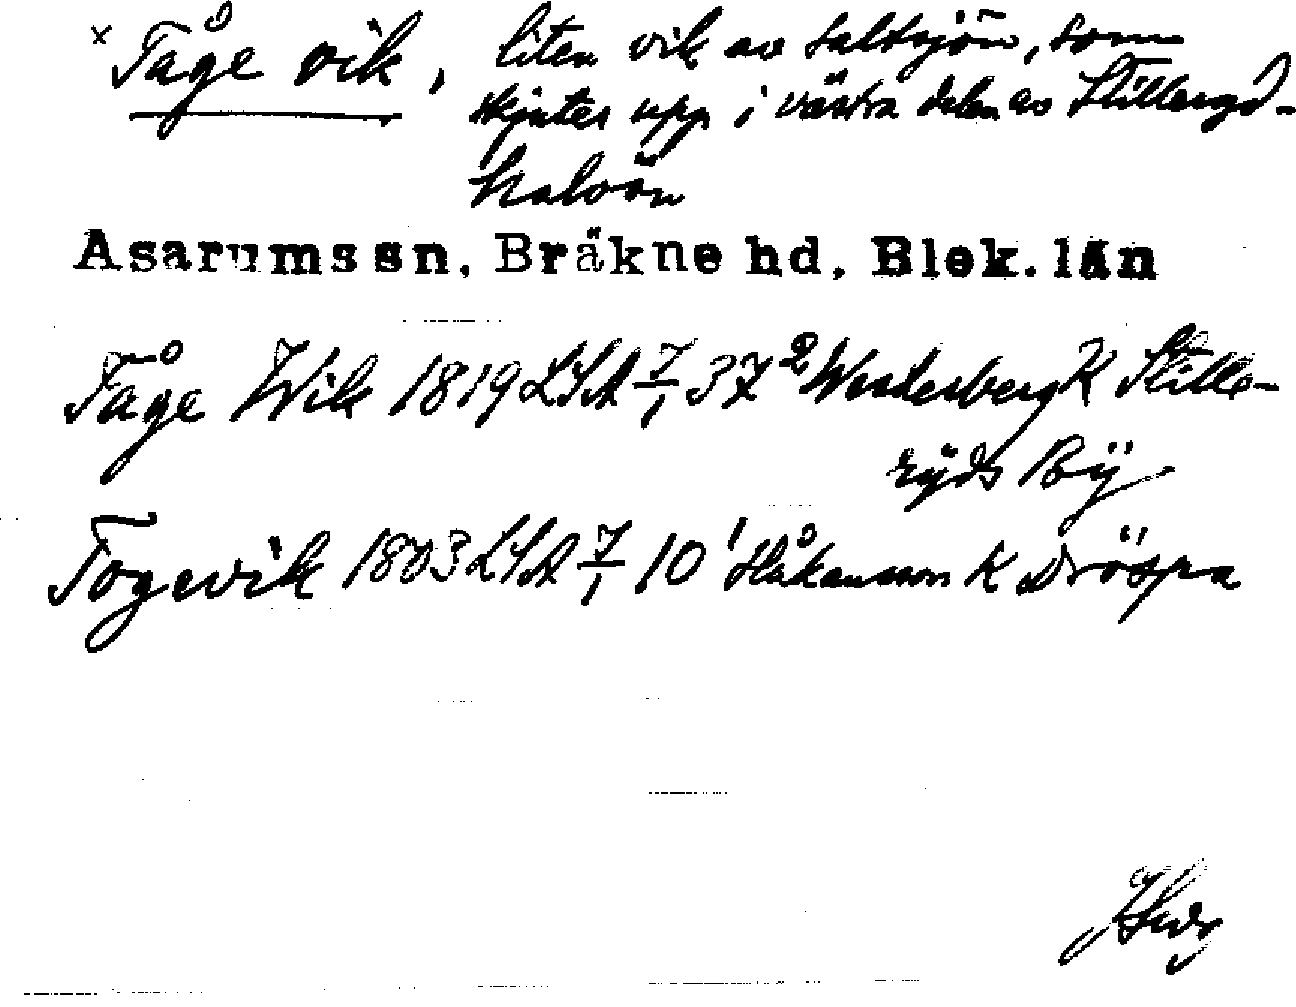 x Tåge vik, liten vik av saltsjön, som
skjuter upp i västra delen av Stilleryd-
halvön
Asarums sn, Bräkne hd, Blek. län
Tåge Wik 1819 LSA 7/1 37 2 Westerberg K Stille-
rÿds Bÿ
Togevik 1803 LSA 7/1 10 1 Håkansson K Dröspa